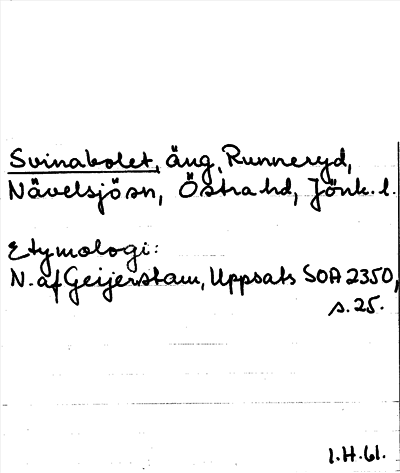 Svinabolet, äng, Runneryd,
Nävelsjö sn, Östra hd, Jönk. l.
Etymologi:
N. af Geijerstam, Uppsats SOA 2350,
s. 25.
I.H. 61.